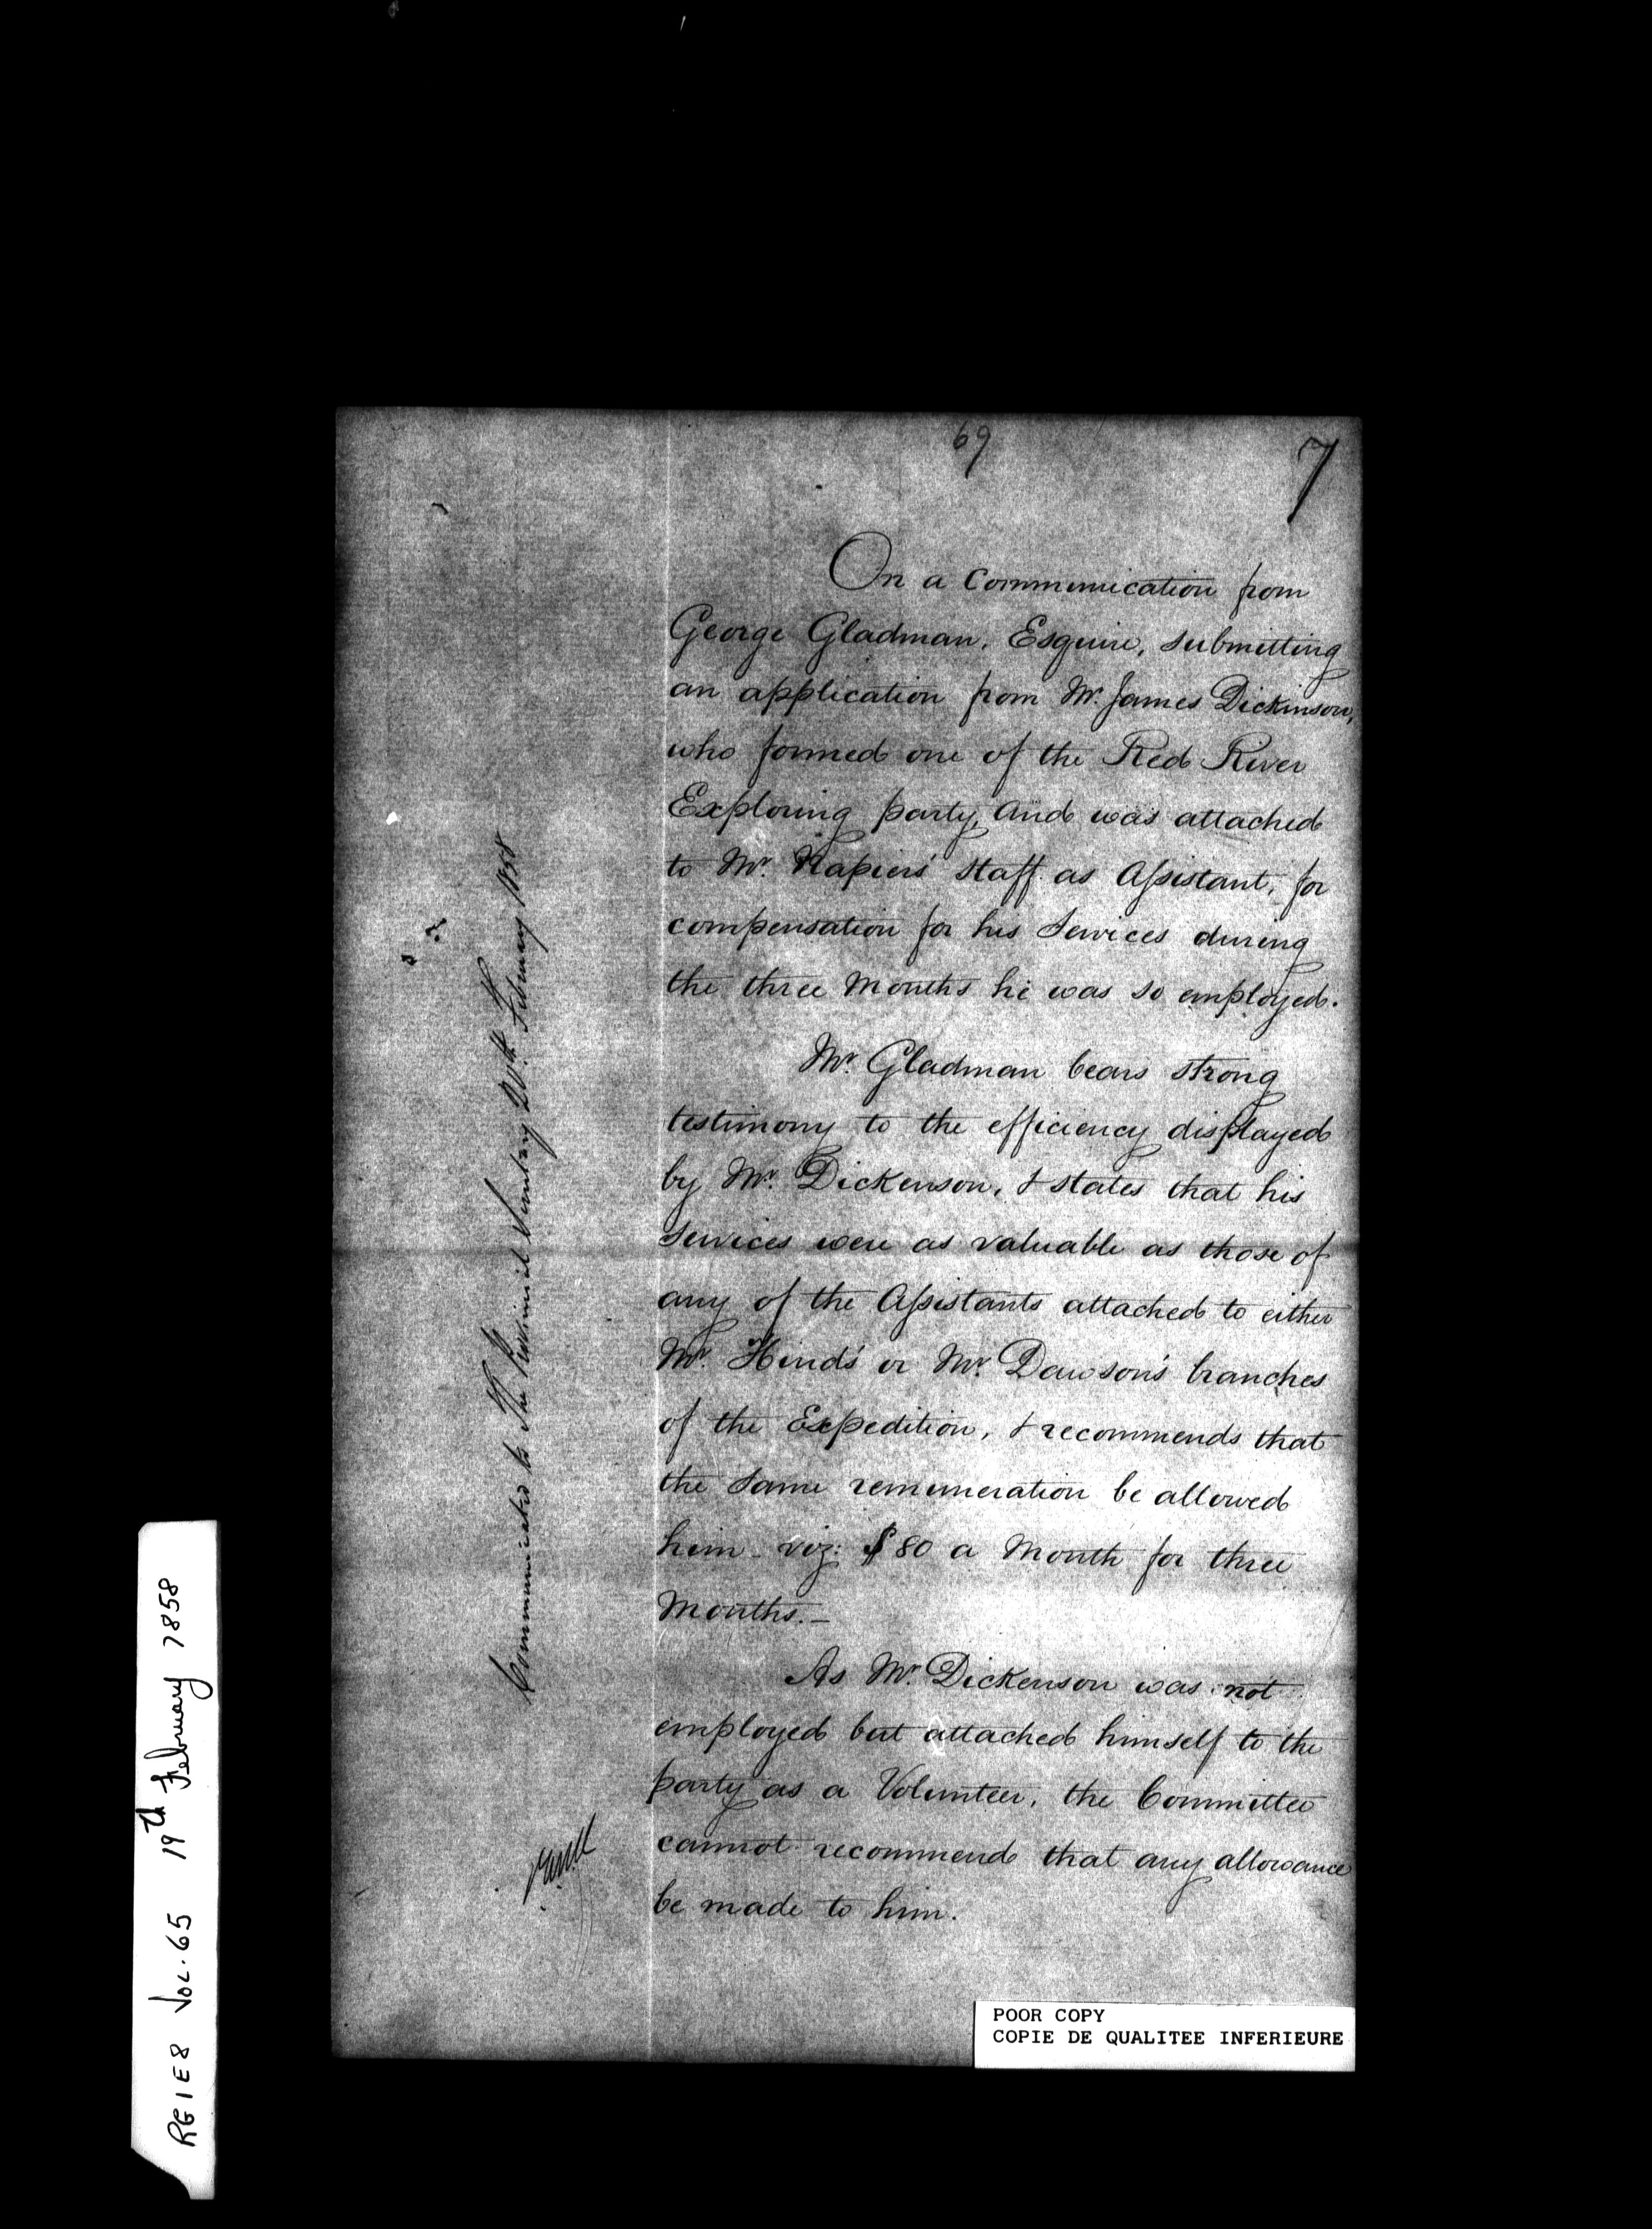 69
7
On a Communication from
George Gladman, Esquire, submitting
an application from Mr. James Dickinson,
who formed one of the Red River
Exploring party, and was attached
to Mr. Napier's Staff as Assistant, for
compensation for his Services during
the three Months he was so employed.
Mr. Gladman bears strong
testimony to the efficiency displayed
by Mr. Dickenson, & states that his
Services were as valuable as those of
any of the Assistants attached to either
Mr. Hind's or Mr. Dawson's branches
of the Expedition, & recommends that
the same remuneration be allowed
him - viz: $80 a Month for three
Months. -
As Mr. Dickenson was not
employed but attached himself to the
party as a Volunteer, the Committee
cannot recommend that any allowance
be made to him.
Communicated to the Provincial Secretary 20th February 1858
RG1E8 VOL.65 19th February 1858
POOR COPY
COPIE DE QUALITEE INFERIEURE